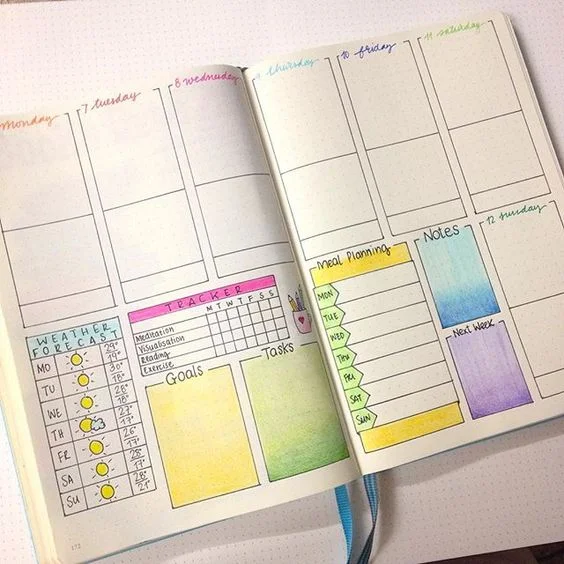 Monday
7 tuesday
8 wednesday
9 thursday
10 friday
11 saturday
WEATHER
FORECAST
MO 29° 19°
TU 30° 18°
WE 28° 18°
TH 27° 17°
FR 26° 17°
SA 28° 17°
SU 28° 21°
TRACKER
M T W T F S S
Meditation
Visualisation
Reading
Exercise
Goals
Tasks
Meal Planning
MON
TUE
WED
THU
FRI
SAT
SUN
Notes
Next Week
12 sunday
172